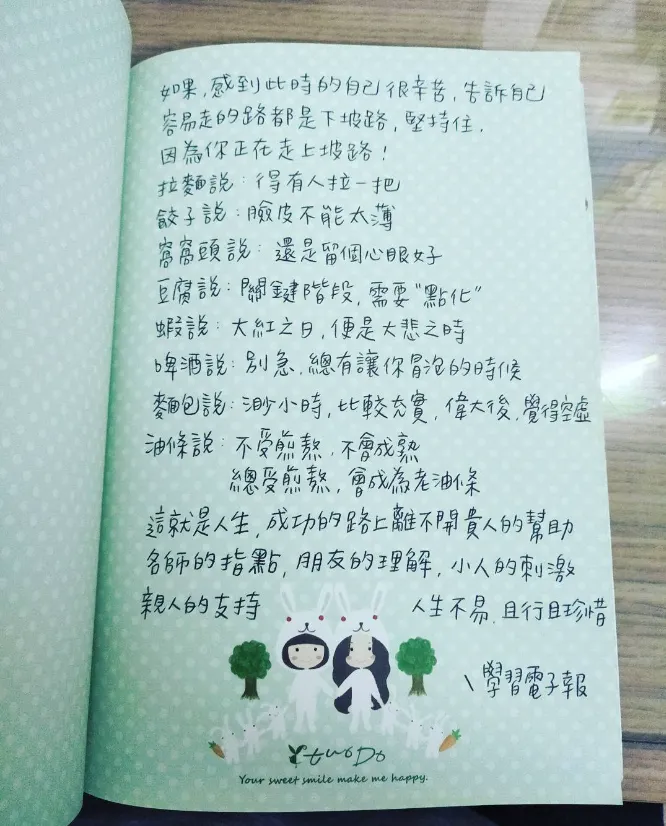 如果,感到此時的自己很辛苦,告訴自己
容易走的路都是下坡路,堅持住,
因為你正在走上坡路!
拉麵說:得有人拉一把
餃子說:臉皮不能太薄
窩窩頭說:還是留個心眼好
豆腐說:關鍵階段,需要“點化”
蝦說:大紅之日,便是大悲之時
啤酒說:別急,總有讓你冒泡的時候
麵包說:渺小時,比較充實,偉大後,覺得空虛
油條說:不受煎熬,不會成熟
總受煎熬,會成為老油條
這就是人生,成功的路上離不開貴人的幫助
名師的指點,朋友的理解,小人的刺激
親人的支持 人生不易,且行且珍惜
\學習電子報
twoDo
Your sweet smile make me happy.